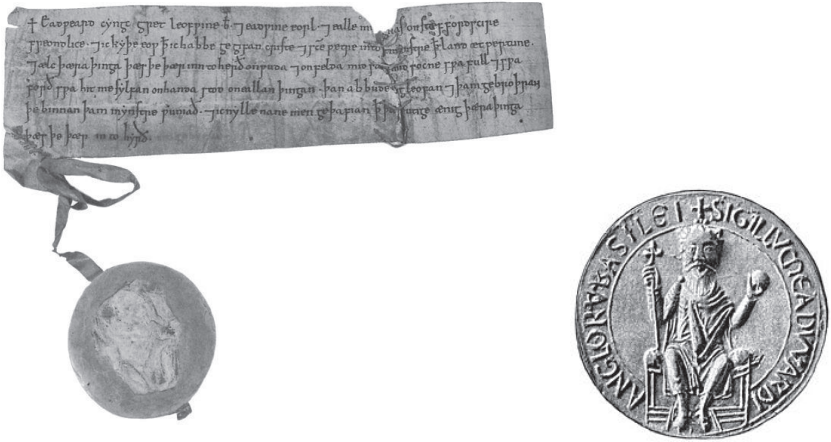 + Eadƿeard cyngc gret leofƿine b̅. ⁊ eadƿine eorl. ⁊ ealle on stæffordscire
freondlice. ⁊ ic kyþe eoƿ ꝥ ic habbe gegifan criste ⁊ sc̅e petre into ꝥ land æt pertune.
⁊ ælc þæra þinga þæs þe þær inn to herð on ƿuda ⁊ on felda mid socne sƿa full ⁊ sƿa
forð sƿa hit me sylfan on handa stod on eallan þingan. þan abbude bigleofan ⁊ þam gebroþran
þe binnan þam mynstre ƿuniað. ⁊ ic nylle nane men geþafian ꝥ ænig þæra þinga
þæs þe þær in to hyrð.
+ SIGILLV̅ EADVVARDI ANGLORV̅ BASILEI